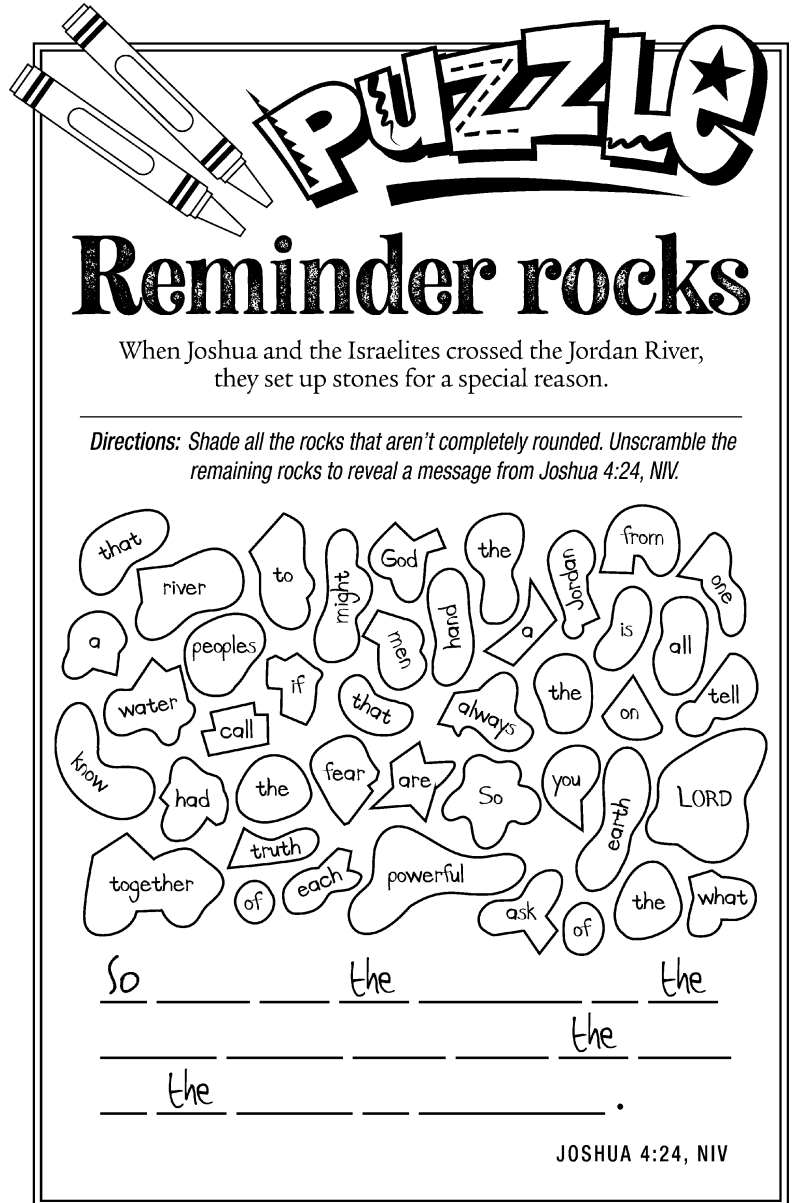 PUZZLE
Reminder rocks
When Joshua and the Israelites crossed the Jordan River,
they set up stones for a special reason.
Directions: Shade all the rocks that aren't completely rounded. Unscramble the
remaining rocks to reveal a message from Joshua 4:24, NIV.
that
river
to
might
God
the
Jordan
from
one
a
peoples
men
hand
a
is
all
water
call
if
that
always
the
on
tell
know
had
the
fear
are
So
you
earth
LORD
together
truth
of
each
powerful
ask
of
the
what
So the the
the
the .
JOSHUA 4:24, NIV